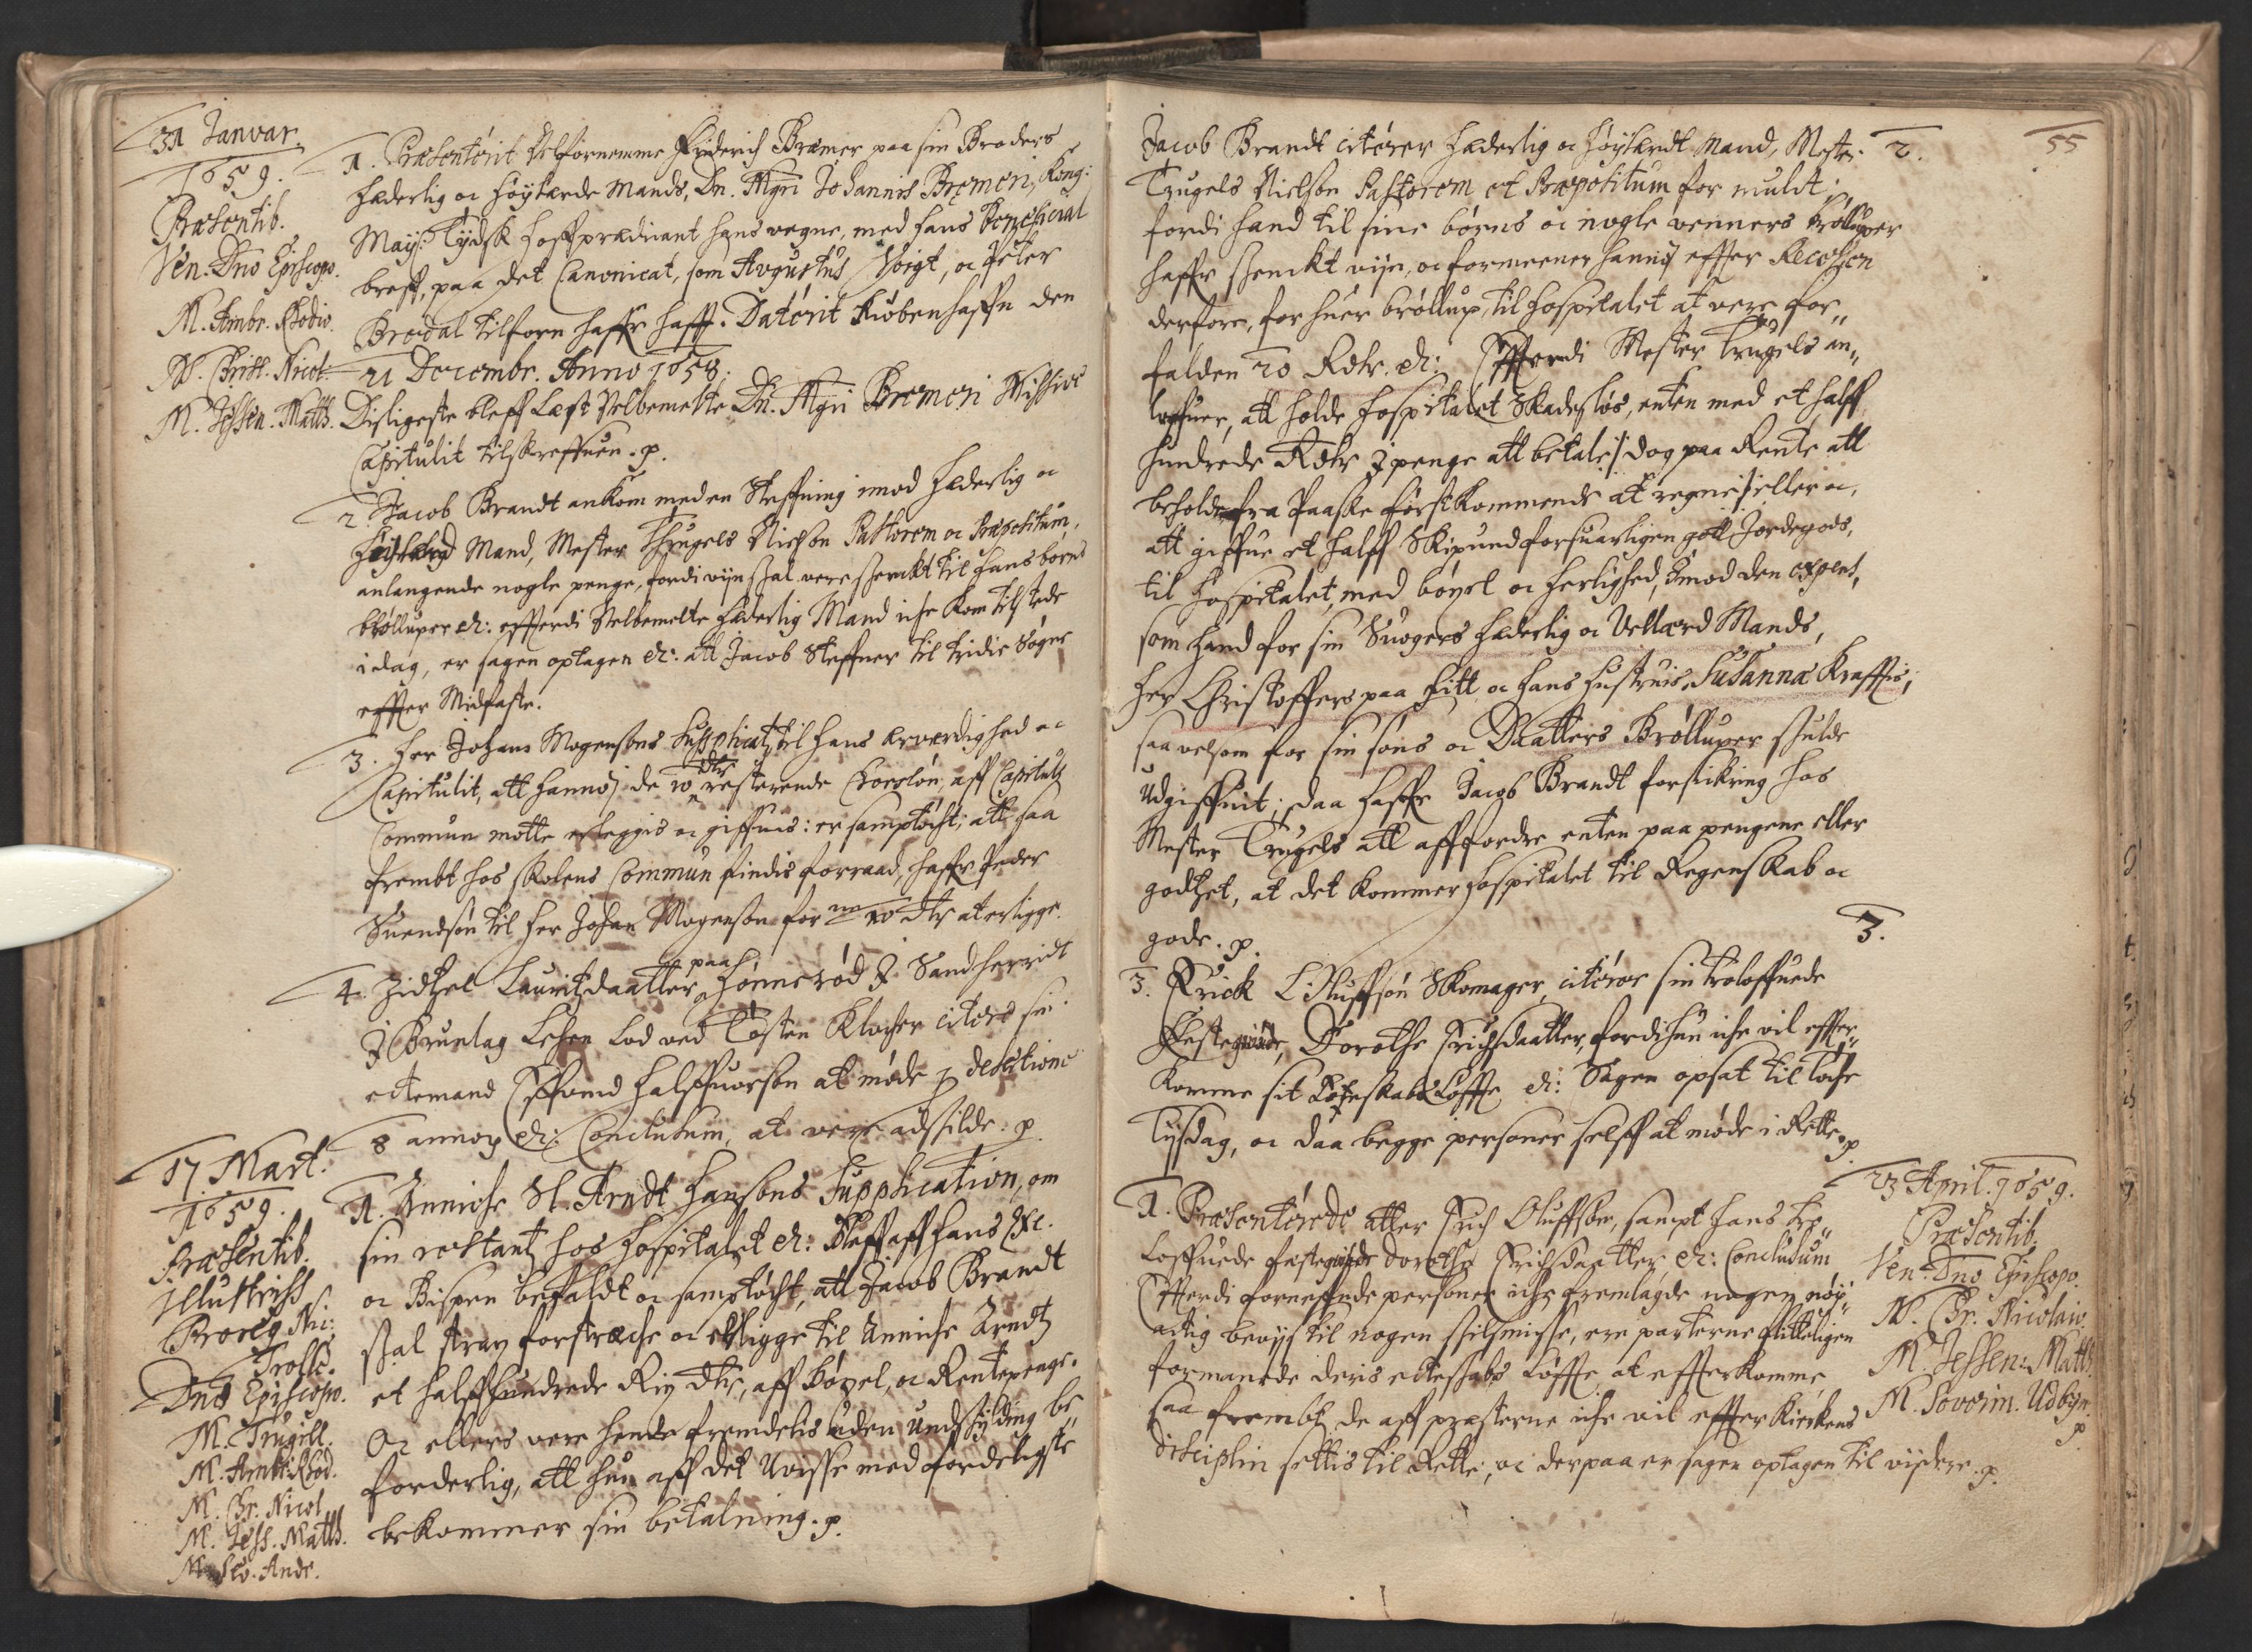 31 Januar.
1659.
Præsentib.
Ven. Dno Episcopo.
M. Ambr. Rhodio.
M. Christ. Nicol.
M. Jessen. Matth.
1. Præsenterit Velfornemme Friderich Bræmer paa sin Broders
hæderlig oc høylærde Mands, Dn. Mgri Johannis Bremeri, Kong:
May: Tydsk hoffprædicant hans vegne, med hans beneficial
breff, paa det Canonicat, som Augustus Voigt, oc Peter
Bredal tilforn haffr hafft. Daterit Kiøbenhaffn den
21 Decembr. Anno 1658.
Disligeste bleff læst Velbemelte Dn. Mgri Bremeri Missive
Capitulit tilskreffuen. p.
2. Jacob Brandt ankom med en Steffning imod hæderlig oc
høylærd Mand, Mester Thrugels Nielsøn Pastorem oc Præpositum,
anlangende nogle penge, fordi vijn skal vere skenckt til hans børns
brølluper etc: effterdi Velbemelte hæderlig Mand iche kom tilstede
i dag, er sagen optagen etc: att Jacob Steffner til tridie Søgne
effter Midfaste.
3. Her Johans Mogensøns Supplicatz til hans ærværdighed oc
Capitulit, att hannöm de 10 dlr resterende Choerløn, aff Capitulz
Commun motte erleggis oc giffuis: er samptøcht, att saa
frembt hos skolens Commun findis forraad, haffr Peder
Suendsøn til her Johan Mogensøn forne 10 dlr at erligge.
4. Zidtzel Lauritzdaatter paa Hønnerød J Sandherridt
J Brunlag Lehen lod ved Tosten Klocher citere sin
ectemand Effvind Halffuorsøn at møde p desertione
8 annor. etc: Conclusum, at vere adskilde. p.
17 Mart.
1659.
Præsentib.
Illustriss.
Proreg. Nic:
Trolle.
Dno Episcopo.
M. Trugill.
M. Ambr. Rhod.
M. Chr. Nicol.
M. Jess. Matth.
M. Sev. Andr.
1. Anniche Sl. Arndt Hansøns Supplication, om
sin restantz hos Hospitalet etc: bleff aff hans Exc.
oc Bispen befaldt oc samptøcht, att Jacob Brandt
skal strax forstræche oc erligge til Anniche Arndtz
et halffhundrede Rix dlr, aff bøxel, oc Rentepenge.
Oc ellers vere hende fremdelis uden undskylding be„
forderlig, att hun aff det Uvisse med forderligste
bekommer sin betalning. p.
55
2.
Jacob Brandt citerer hæderlig oc høylærdt Mand, Mester
Trugels Nielsøn Pastorem et Præpositum for mulct
fordi hand til sine børns oc nogle venners brølluper
haffr skenckt vijn, oc formeener hannöm effter Recessen
derfore, for huer brøllup, til hospitalet at vere for„
falden 20 Rdlr. etc: Effterdi Mester Trugels an„
loffuer, att holde hospitalet Skadesløs, enten med et halff
hundrede Rdlr J penge att betale /: dog paa Rente att
beholde fra Paaske førstkommende at regne :/ eller oc,
att giffue et halff Skipund forsuarligen gott Jordegods,
til hospitalet, med bøxel oc herlighed, Imod den expens,
som hand for sin Suogers hæderlig oc Vellærd Mands,
Her Christoffers paa Hitt oc hans hustruis, Susanna Kraffts,
saa velsom for sin søns oc Daatters Brølluper skulde
Udgiffuit; daa haffr Jacob Brandt forsickring hos
Mester Trugels att affordre enten paa pengene eller
godtzet, at det kommer hospitalet til Regenskab oc
gode. p.
3.
3. Erick Oluffsøn Skomager, citerer sin troloffuede
Festequinde, Dorothe Erichsdaatter, fordi hun iche vil effter„
komme sit Ecteskabs Løffte etc: Sagen opsat til Løche
Tijsdag, oc daa begge personer selff at møde i Rette. p
23 April. 1659.
Præsentib.
Ven. Dno Episcopo.
M. Chr. Nicolaio.
M. Jessen. Matth.
M. Soverin. Udbyn.
p
1. Præsenterede atter Erich Oluffsøn, sampt hans tro„
loffuede festequinde Dorothe Erichsdaatter etc: Conclusum
Effterdi forneffnde personer iche fremlagde nogen nøy„
actig beviis til nogen skilsmisse, ere parterne flitteligen
formanede deris ecteskabs Løffte at effterkomme
saa frembt de aff præsterne iche vil effter Kirckens
disciplin settis til Rette, oc derpaa er sagen optagen til vijdere. p.